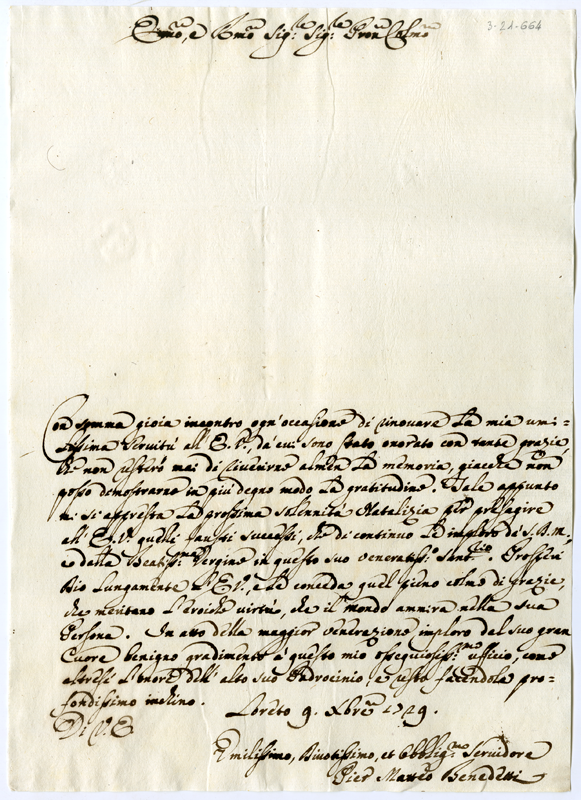 Emo, e Rmo Sig.re Sig.re Pron Colmo
3-21-664
Con somma gioia incontro ogn'occasione di rinovare la mia umi=
lissima servitù all'E.V., da cui sono stato onorato con tante grazie,
che non resterò mai di riverirne almen la memoria, giacchè non
posso demostrarne in più degno modo la gratitudine. Tale appunto
mi si appresta la prossima solennità Natalizia per presagire
all'E.V. quelli fausti successi, che di continuo le imploro da S.D.M.,
e dalla Beatiss.ma Vergine in questo suo veneratiss.o Sant.rio. Prosperi
Dio lungamente l'E.V., e le conceda quel pieno colmo di grazie,
che meritano l'eroiche virtù, che il mondo ammira nella sua
Persona. In atto della maggior venerazione imploro dal suo gran
Cuore benigno gradimento à questo mio ossequiosiss.mo ufficio, come
altresì l'onore dell'alto suo Padrocinio, e resto facendole pro-
fondissimo inchino.
Loreto 9. Xbre 1749.
Di V.E
Umilissimo, Divotissimo, et Obblig.mo Servidore
Pier Matteo Benedetti